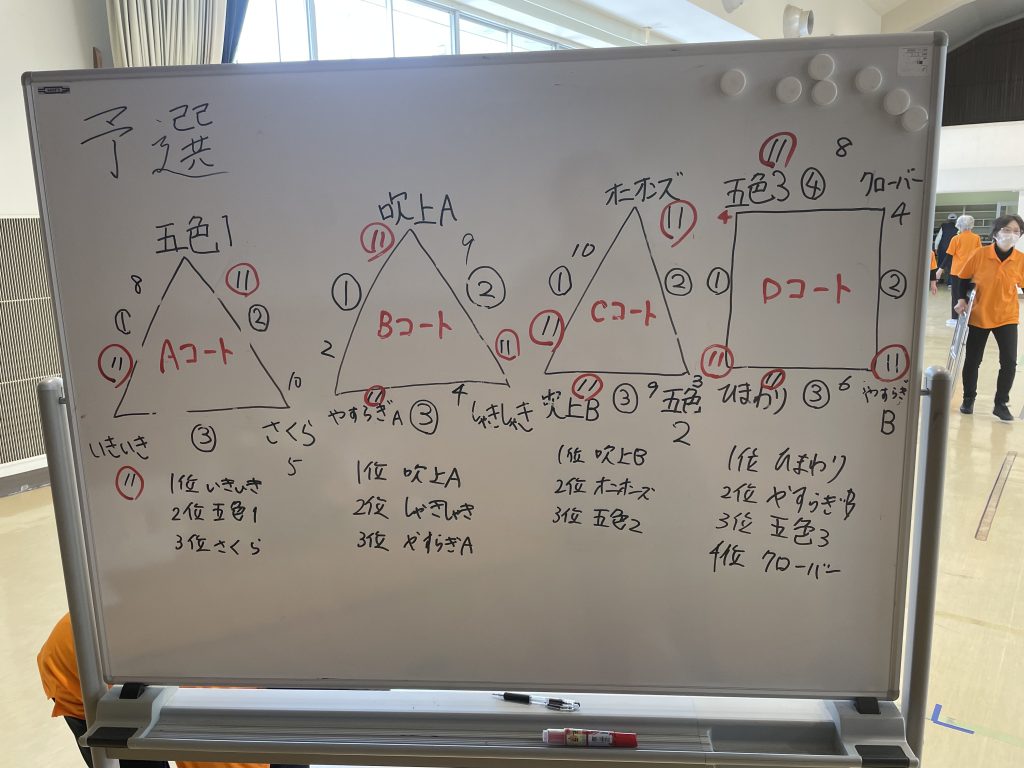 予選
五色1
8
⑪
①
②
⑪
Aコート
10
いきいき
③
さくら
5
⑪
1位 いきいき
2位 五色1
3位 さくら
吹上A
⑪
9
①
②
Bコート
2
⑪
⑪
4
やすらぎA
③
しゃきしゃき
1位 吹上A
2位 しゃきしゃき
3位 やすらぎA
オニオンズ
⑪
10
①
②
⑪
Cコート
⑪
9
3
吹上B
③
五色
2
1位 吹上B
2位 オニオンズ
3位 五色2
⑪
8
五色3
④
クローバー
4
4
①
②
Dコート
⑪
⑪
6
⑪
ひまわり
③
やすらぎ
B
1位 ひまわり
2位 やすらぎB
3位 五色3
4位 クローバー